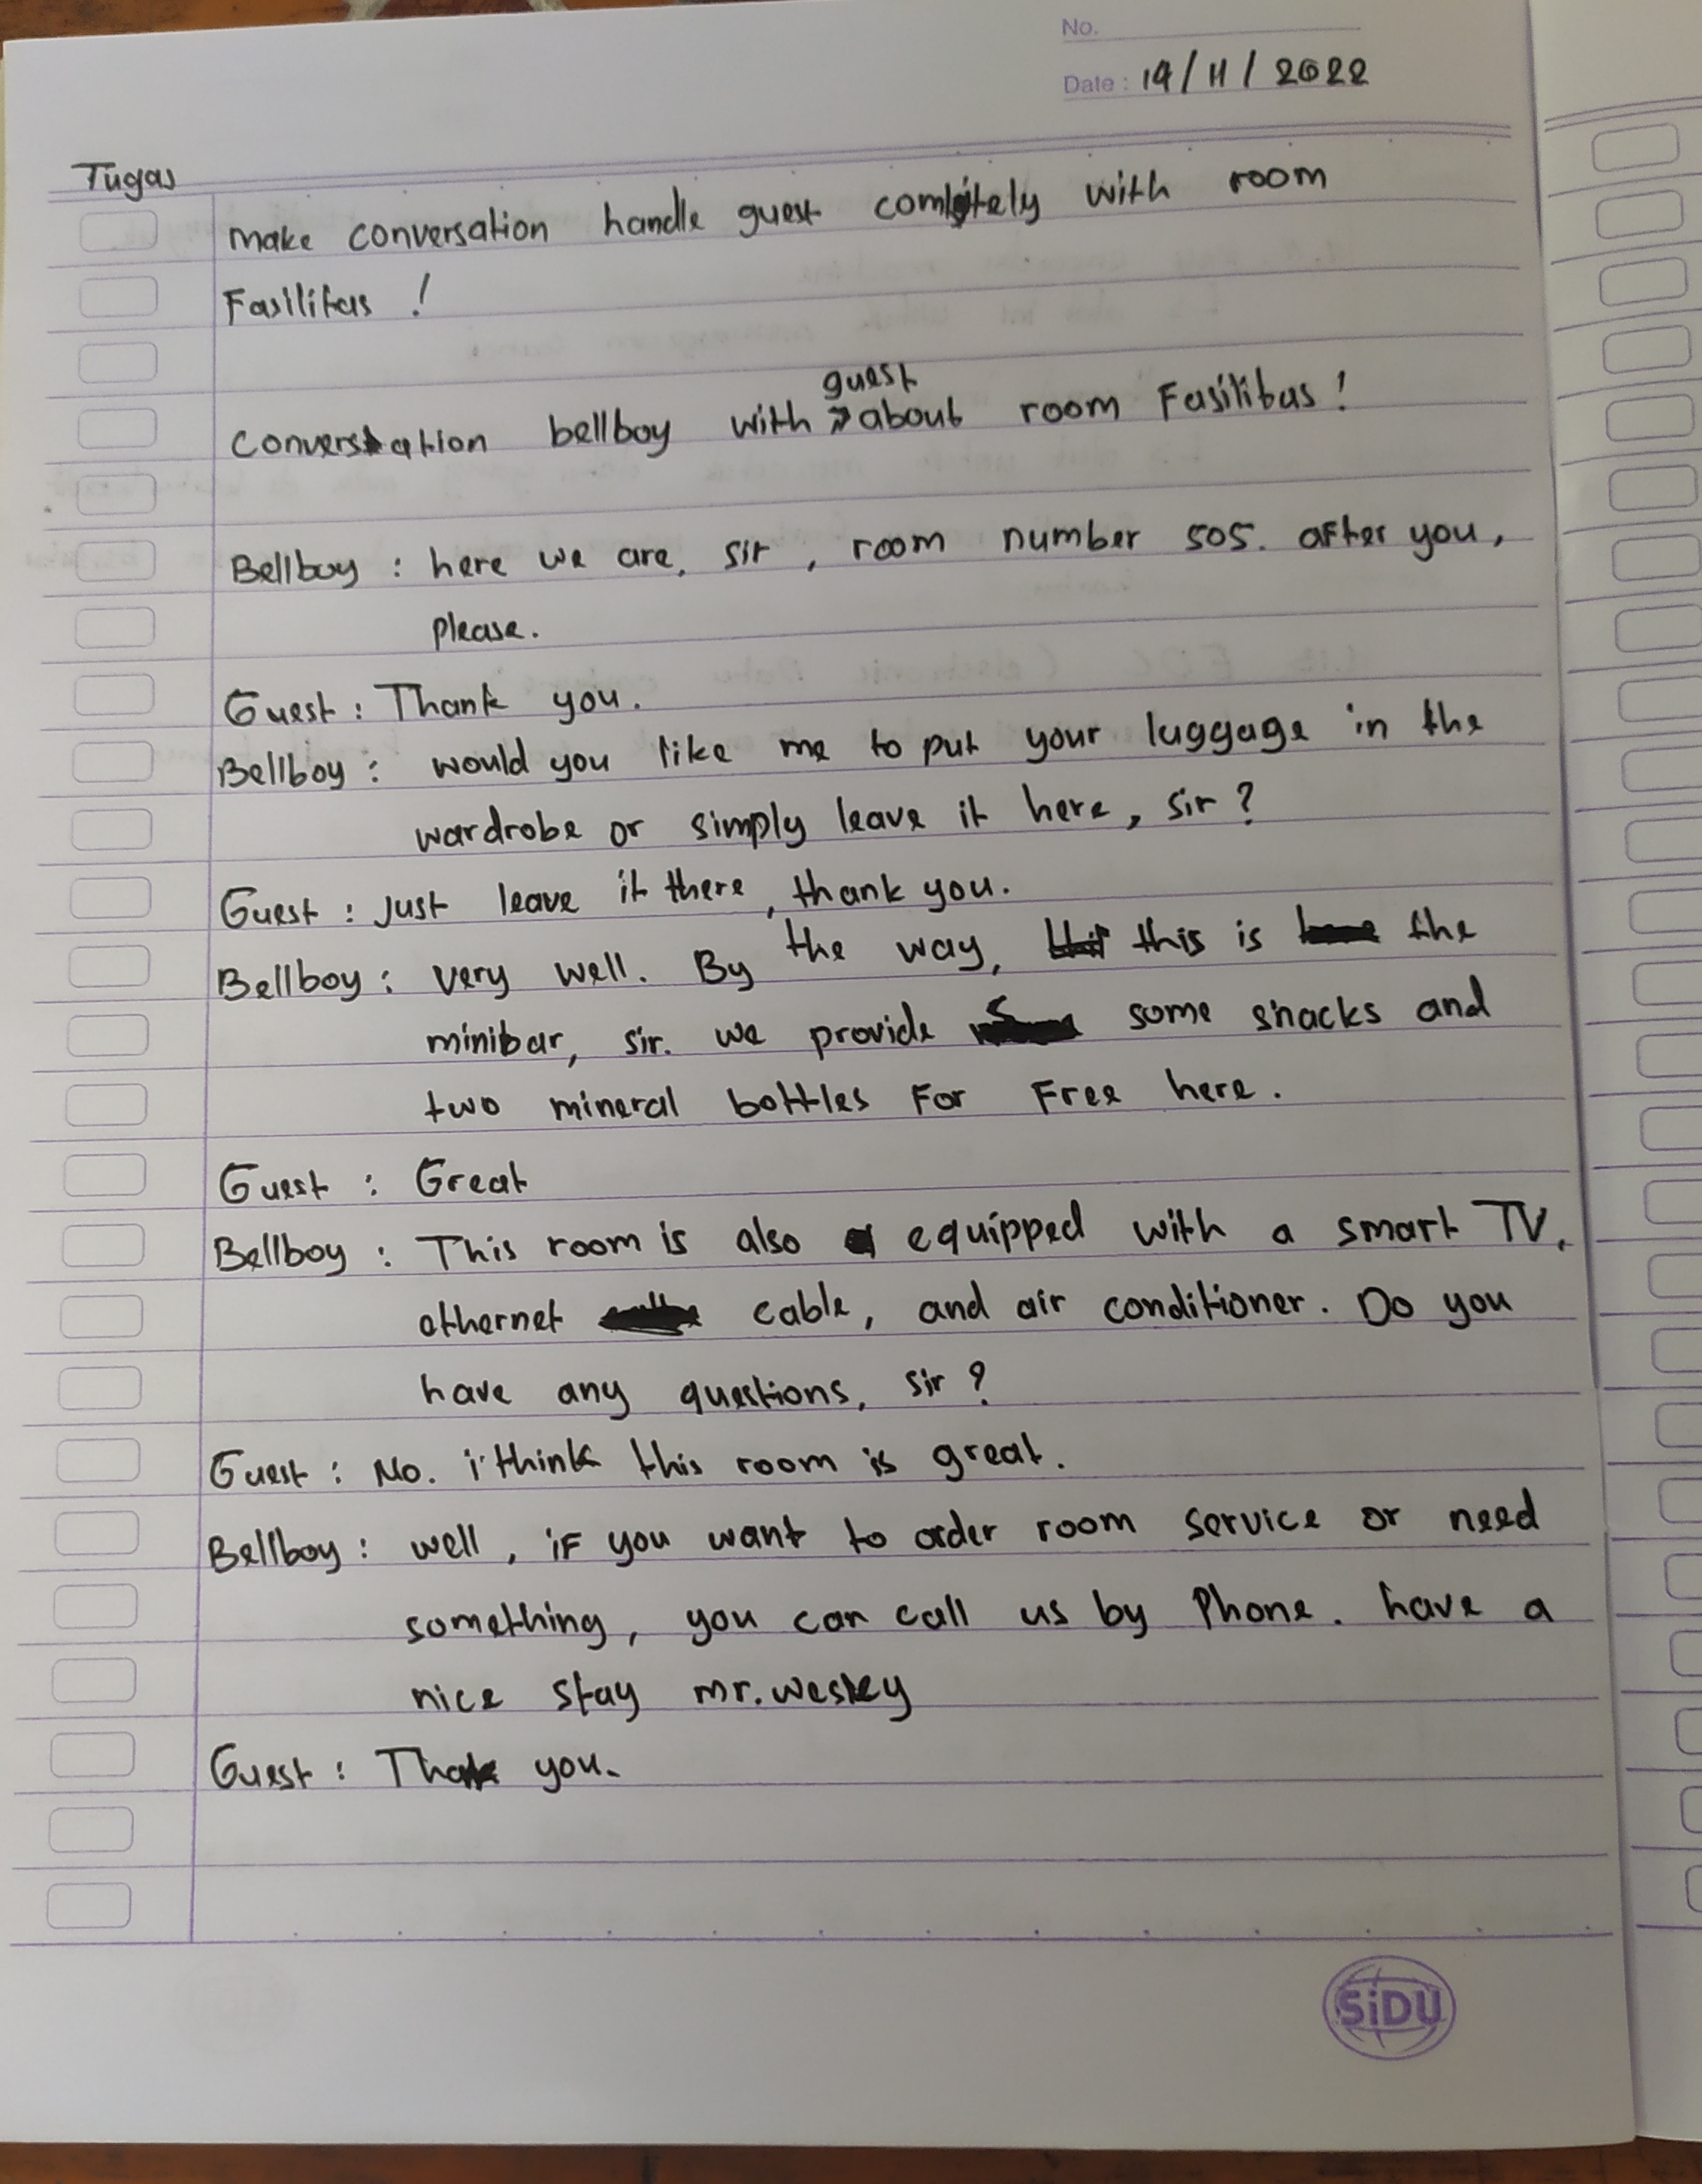 No.
Date : 19/11/2022
Tugas
make conversation handle guest comlitely with room
Fasilitas !
guest
Conversation bellboy with about room Fasilitas !
Bellboy : here we are, sir, room number 505. after you,
please.
Guest : Thank you.
Bellboy : would you like me to put your luggage in the
wardrobe or simply leave it here, sir ?
Guest : Just leave it there, thank you.
Bellboy : very well. By the way, this is the
minibar, sir. we provide some snacks and
two mineral bottles For Free here.
Guest : Great
Bellboy : This room is also equipped with a smart TV,
ethernet cable, and air conditioner. Do you
have any questions, sir ?
Guest : No. i think this room is great.
Bellboy : well, if you want to order room service or need
something, you can call us by Phone. have a
nice stay mr. wesley
Guest : Thank you.
SiDU